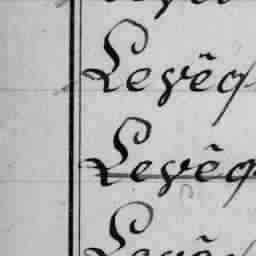 Levêq
Levêq
Levêq